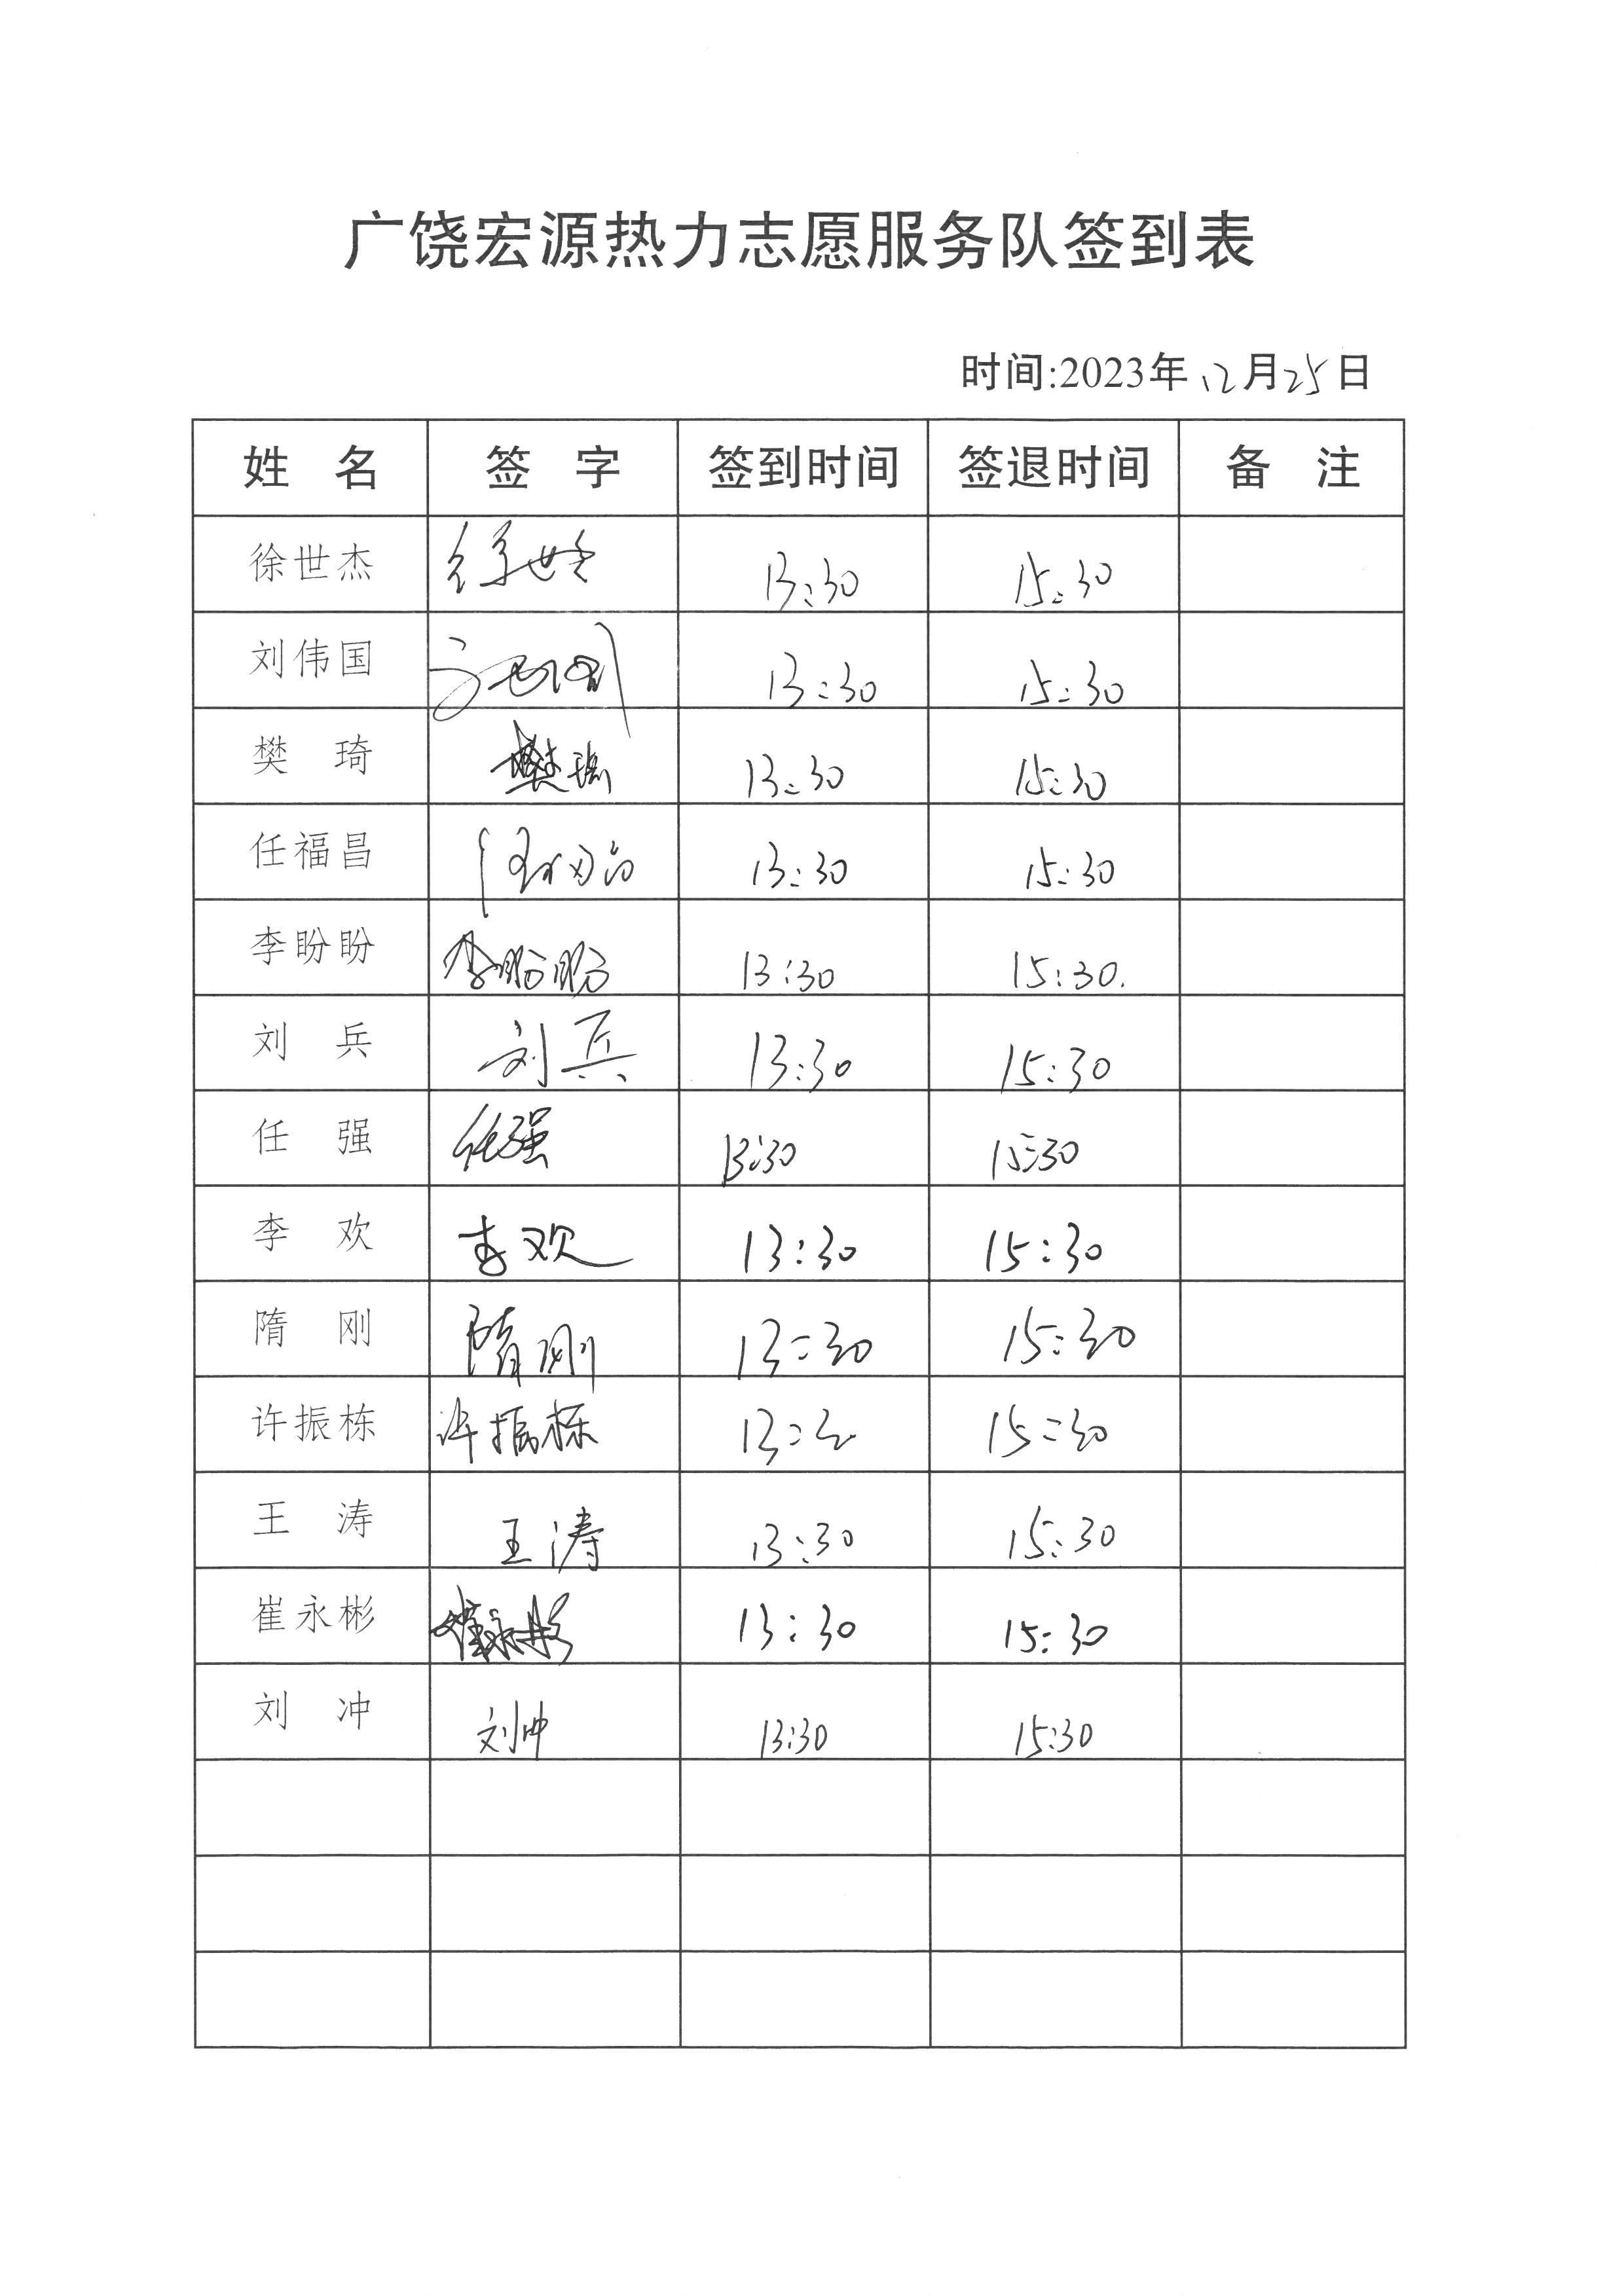 广饶宏源热力志愿服务队签到表
时间:2023年12月25日
姓 名 签 字 签到时间 签退时间 备 注
徐世杰 徐世杰 13:30 15:30
刘伟国 13:30 15:30
樊 琦 樊琦 13:30 15:30
任福昌 13:30 15:30
李盼盼 李盼盼 13:30 15:30.
刘 兵 刘兵 13:30 15:30
任 强 任强 13:30 15:30
李 欢 李欢 13:30 15:30
隋 刚 隋刚 13:30 15:30
许振栋 许振栋 13:30 15:30
王 涛 王涛 13:30 15:30
崔永彬 崔永彬 13:30 15:30
刘 冲 刘冲 13:30 15:30